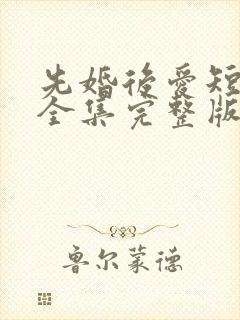 先婚後愛短
全集完整版
鲁尔蒙德